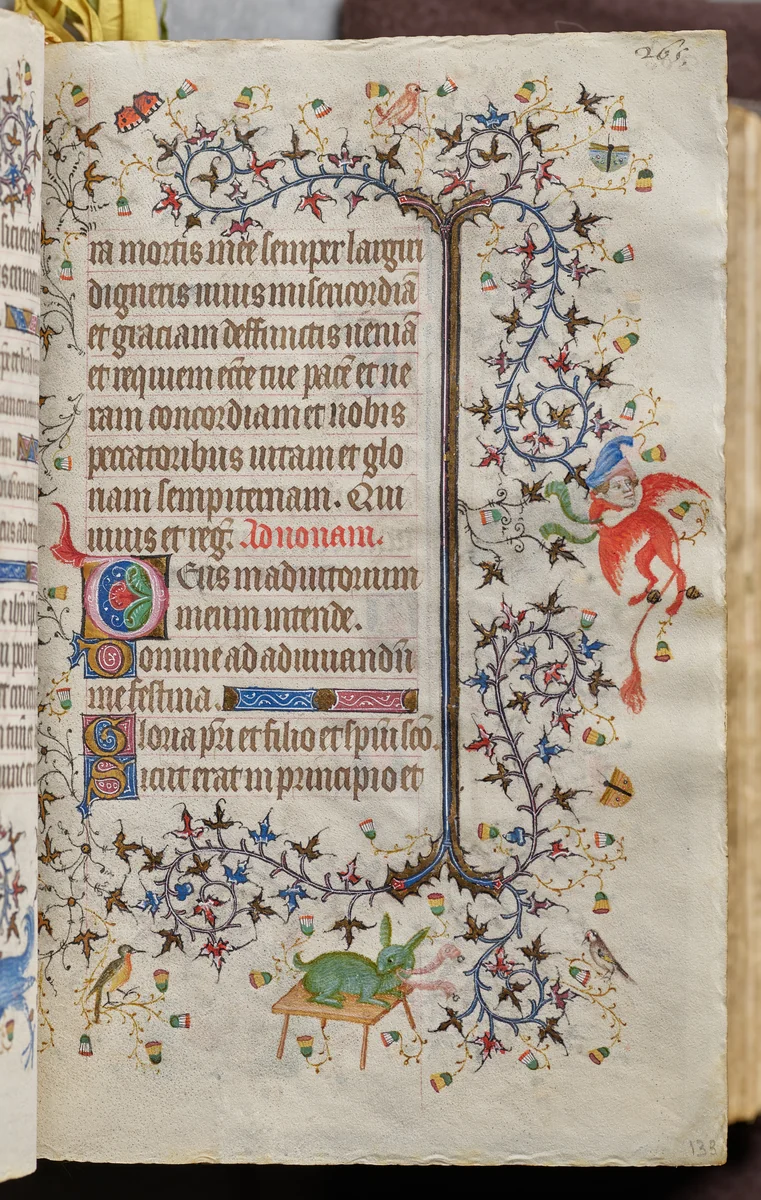 265.
ra mortis mee semper largiri
digneris uiuis misericordiã
et graciam deffunctis ueniã
et requiem ecc̃e tue pacẽ et ue
ram concordiam et nobis
peccatoribus uitam et glo
riam sempiternam. Qui
uiuis et reg̃. Ad nonam.
Deus in adiutorium
meum intende.
Domine ad adiuuandũ
me festina.
Gloria pr̃i et filio et spũi scõ.
Sicut erat in principio et
133